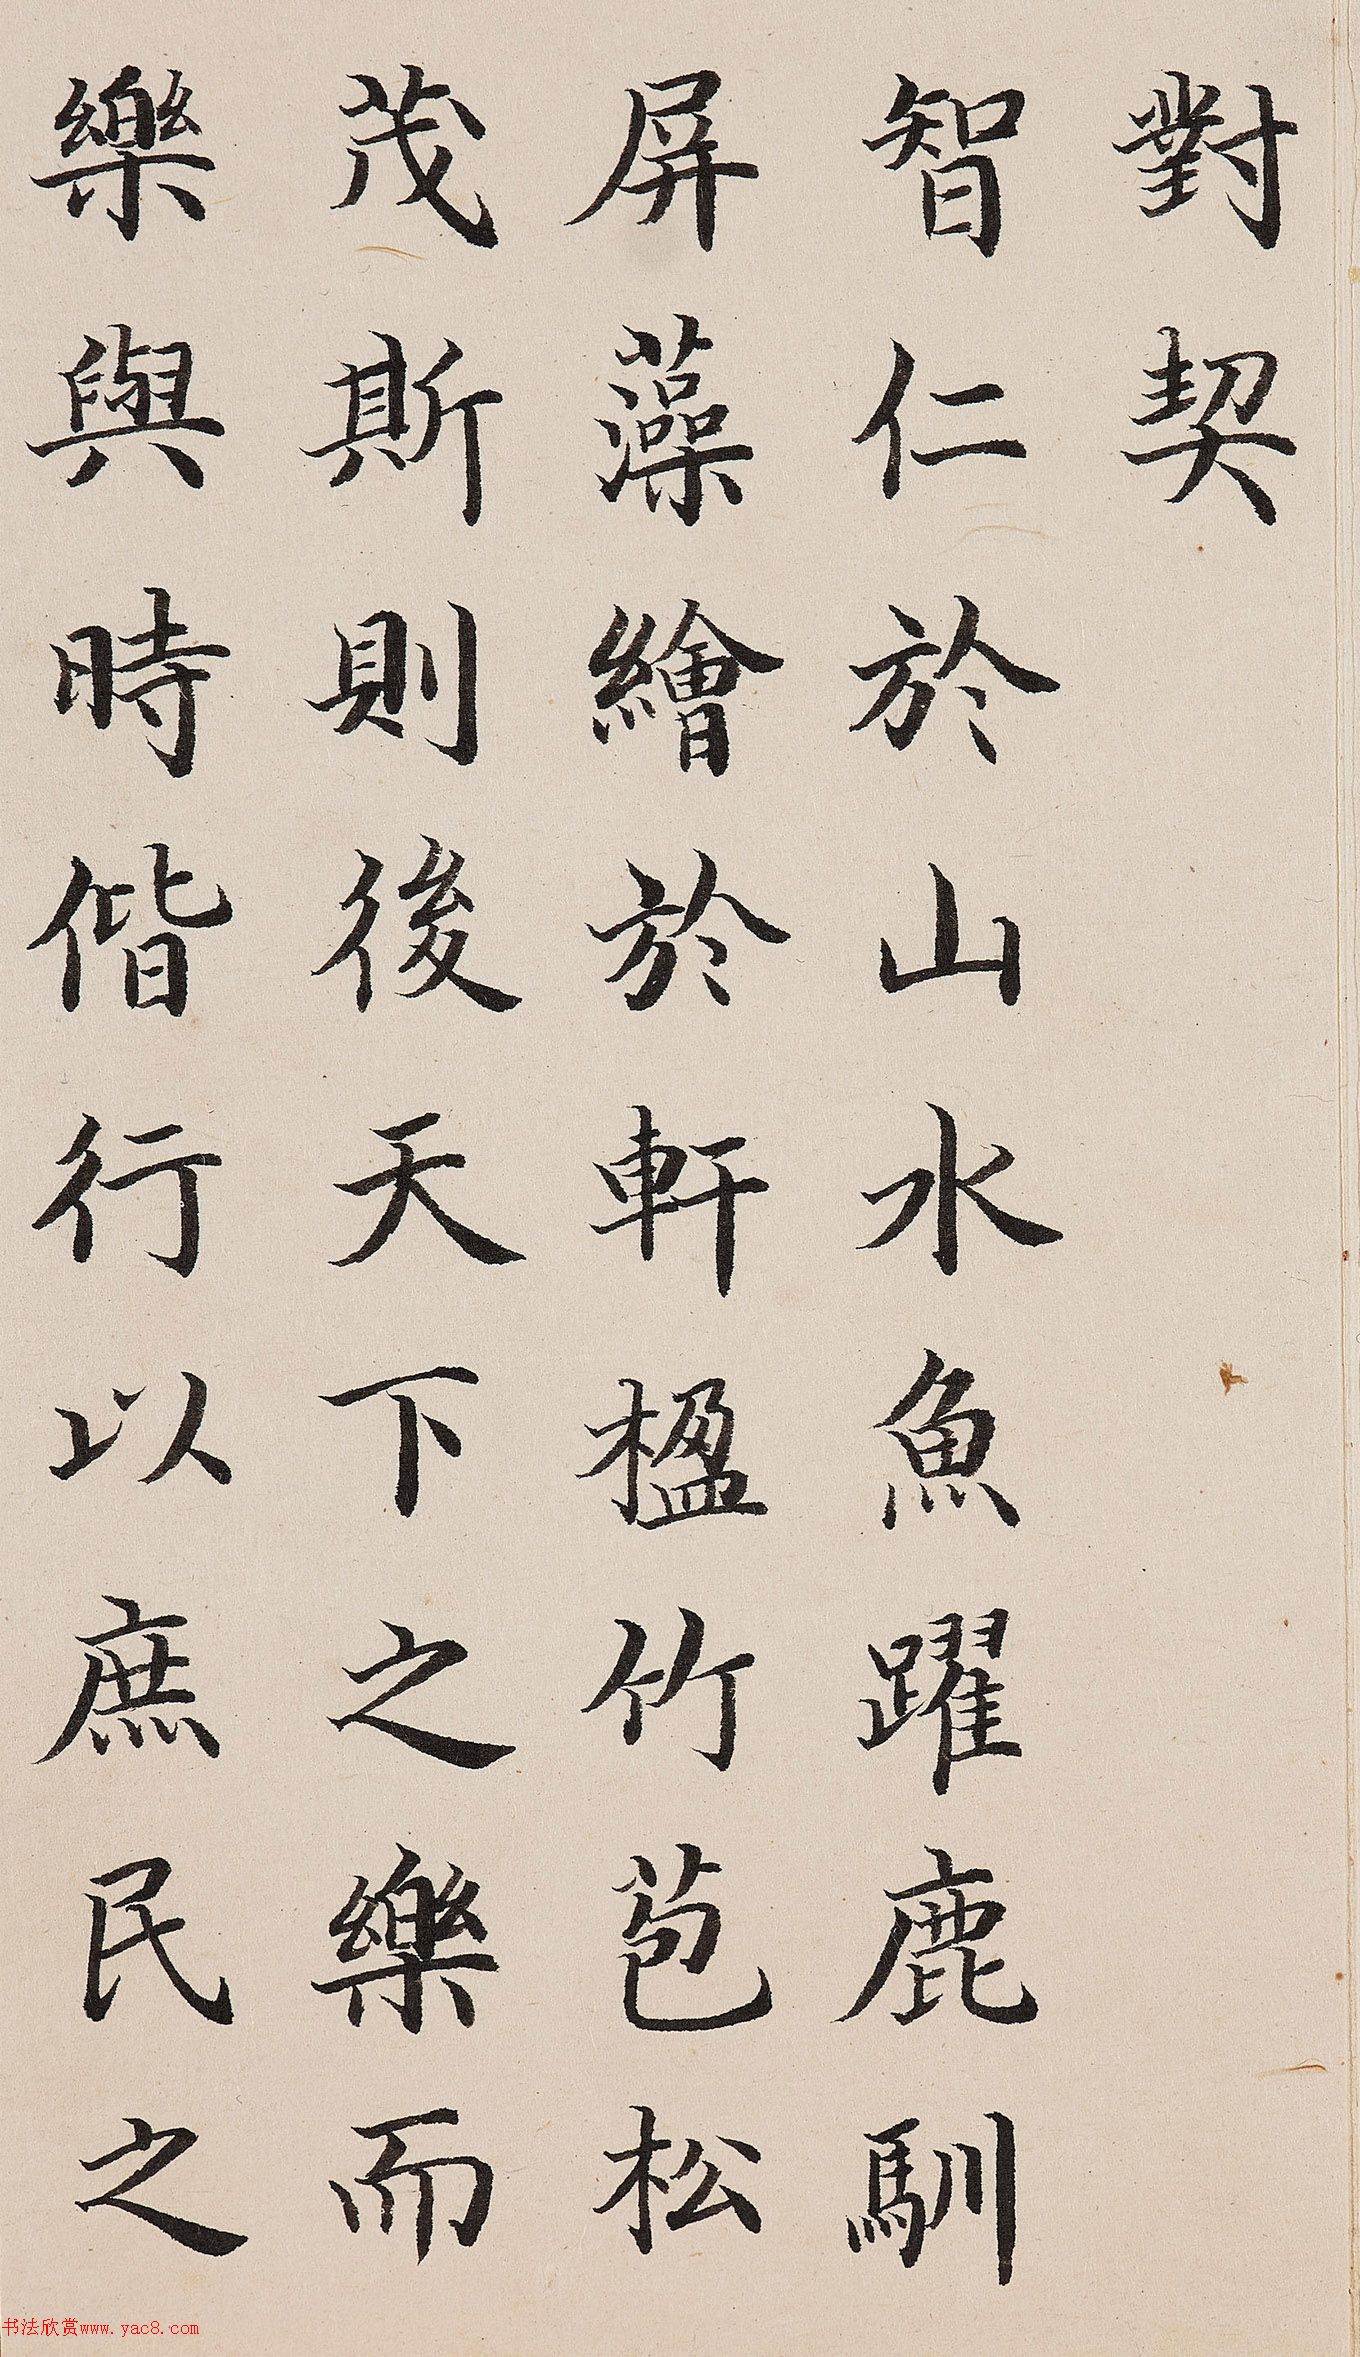 對契
智仁於山水魚躍鹿馴
屏藻繪於軒楹竹苞松
茂斯則後天下之樂而
樂與時偕行以庶民之
书法欣赏www.yac8.com